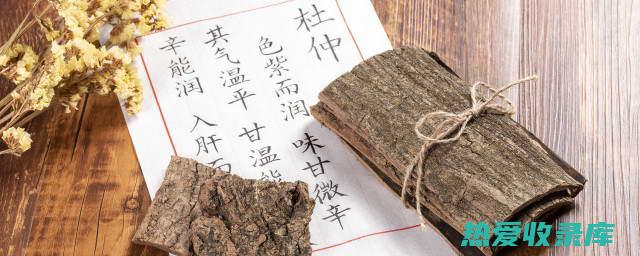 杜仲
色紫而润 味甘微辛
其气温平 甘温能
辛能润 入肝而
热爱收录库